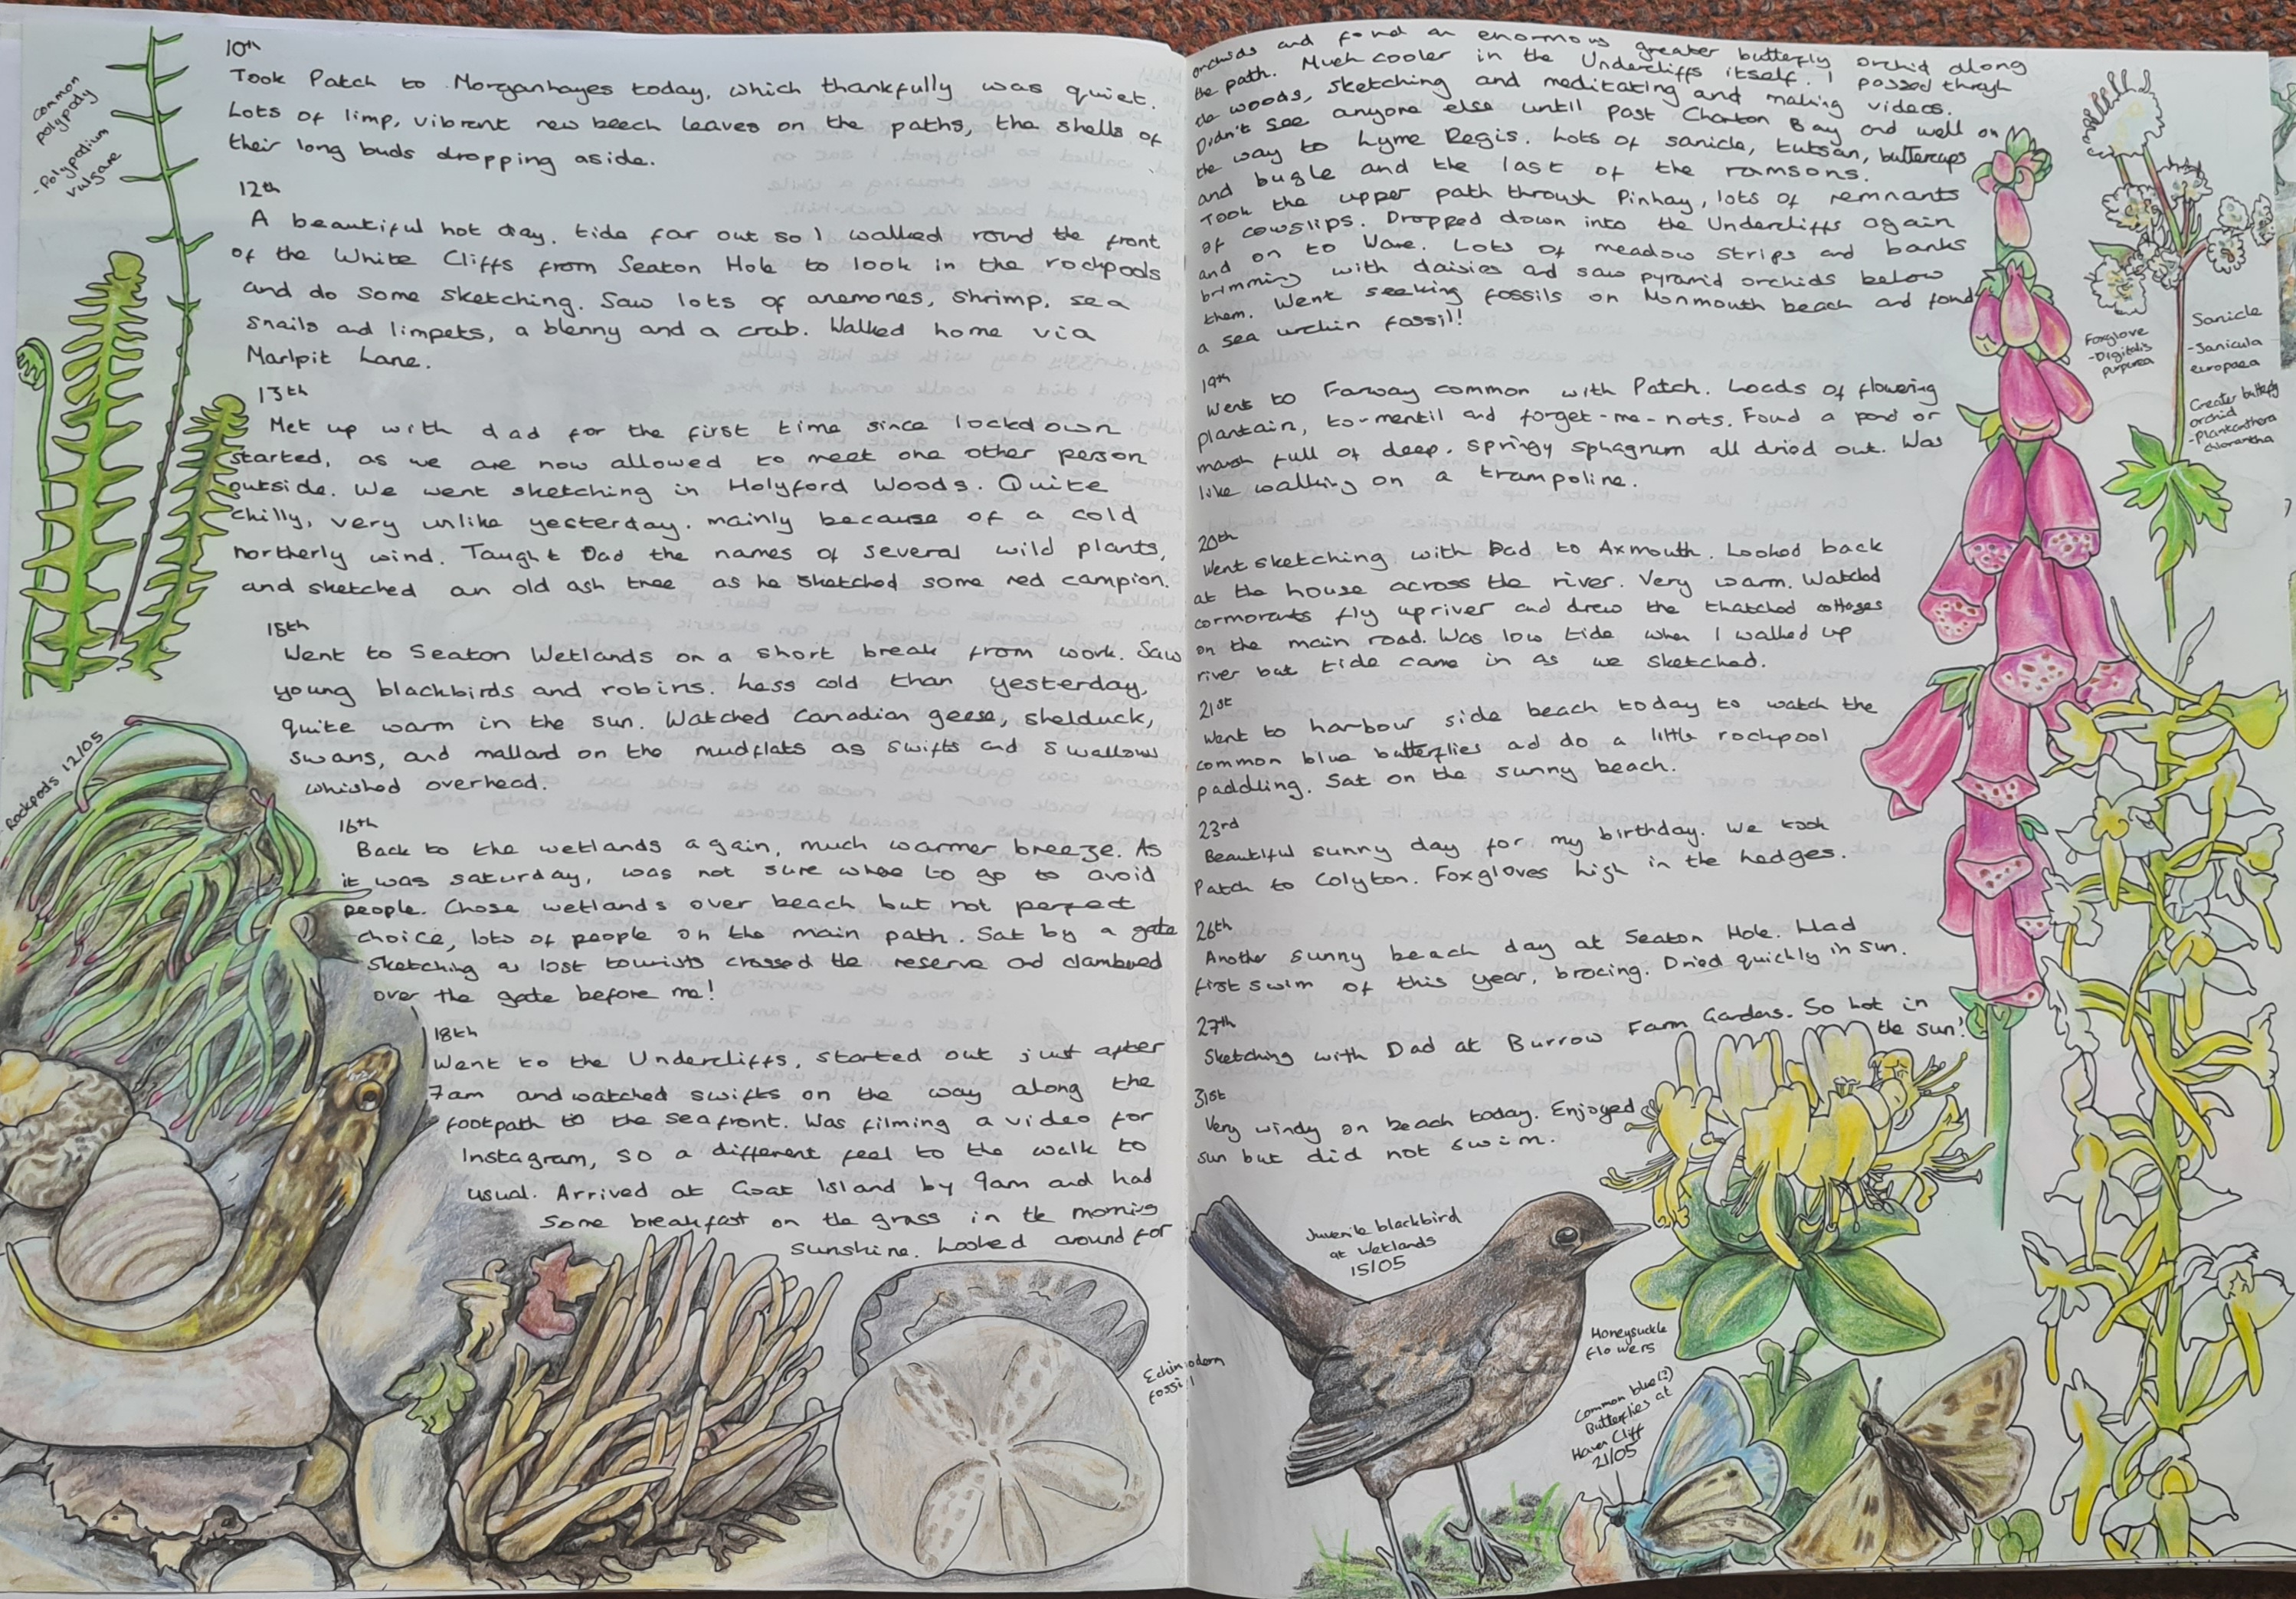 common
polypody
- Polypodium
vulgare
10th
Took Patch to Morganhayes today, which thankfully was quiet.
Lots of limp, vibrant new beech leaves on the paths, the shells of
their long buds dropping aside.
12th
A beautiful hot day, tide far out so I walked round the front
of the White Cliffs from Seaton Hole to look in the rockpools
and do some sketching. Saw lots of anemones, shrimp, sea
snails and limpets, a blenny and a crab. Walked home via
Marlpit Lane.
13th
Met up with dad for the first time since lockdown
started, as we are now allowed to meet one other person
outside. We went sketching in Holyford Woods. Quite
chilly, very unlike yesterday, mainly because of a cold
northerly wind. Taught Dad the names of several wild plants,
and sketched an old ash tree as he sketched some red campion.
15th
Went to Seaton Wetlands on a short break from work. Saw
young blackbirds and robins. Less cold than yesterday,
quite warm in the sun. Watched Canadian geese, shelduck,
swans, and mallard on the mudflats as swifts and swallows
whished overhead.
Rockpools 12/05
16th
Back to the wetlands again, much warmer breeze. As
it was saturday, was not sure where to go to avoid
people. Chose wetlands over beach but not perfect
choice, lots of people on the main path. Sat by a gate
sketching as lost tourists crossed the reserve and clambered
over the gate before me!
18th
Went to the Undercliffs, started out just after
7am and watched swifts on the way along the
footpath to the seafront. Was filming a video for
Instagram, so a different feel to the walk to
usual. Arrived at Goat Island by 9am and had
some breakfast on the grass in the morning
sunshine. Looked around for
Echinoderm
fossil
orchids and found an enormous greater butterfly orchid along
the path. Much cooler in the Undercliffs itself. I passed through
the woods, sketching and meditating and making videos.
Didn't see anyone else until past Charton Bay and well on
the way to Lyme Regis. Lots of sanicle, tutsan, buttercups
and bugle and the last of the ramsons.
Took the upper path through Pinhay, lots of remnants
of cowslips. Dropped down into the Undercliffs again
and on to Ware. Lots of meadow strips and banks
brimming with daisies and saw pyramid orchids below
them. Went seeking fossils on Monmouth beach and found
a sea urchin fossil!
19th
Went to Farway common with Patch. Loads of flowering
plantain, to-mentil and forget-me-nots. Found a pond or
marsh full of deep, springy sphagnum all dried out. Was
like walking on a trampoline.
20th
Went sketching with Dad to Axmouth. Looked back
at the house across the river. Very warm. Watched
cormorants fly upriver and drew the thatched cottages
on the main road. Was low tide when I walked up
river but tide came in as we sketched.
21st
Went to harbour side beach today to watch the
common blue butterflies and do a little rockpool
paddling. Sat on the sunny beach.
23rd
Beautiful sunny day for my birthday. We took
Patch to Colyton. Foxgloves high in the hedges.
26th
Another sunny beach day at Seaton Hole. Had
first swim of this year, bracing. Dried quickly in sun.
27th
Sketching with Dad at Burrow Farm Gardens. So hot in
the sun!
31st
Very windy on beach today. Enjoyed
sun but did not swim.
Foxglove
- Digitalis
purpurea
Sanicle
- Sanicula
europaea
Greater butterfly
orchid
- Plantanthera
chlorantha
Juvenile blackbird
at Wetlands
15/05
Honeysuckle
flowers
Common blue(?)
Butterflies at
Haven Cliff
21/05